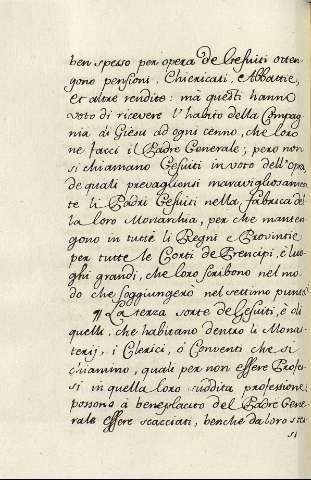 ben spesso per opera de Gesuiti otten-
gono pensioni, Chiericati, e Abbattie,
et altre rendite: mà questi hanno
voto di ricevere l'habito della Compag-
nia di Giesù ad ogni cenno, che loro
ne facci il Padre Generale, pero non
si chiamano Gesuiti in voto dell'opra
de quali prevaglionsi maravigliosamen-
te li Padri Gesuiti nella fabrica del-
la loro Monarchia, per che manten-
gono in tutte li Regni e Provintie
per tutte le Corti de Prencipi, è luo-
ghi grandi, che loro servono nel mo-
do che soggiungerò nel settimo punto.
¶ La terza sorte de Gesuiti, è di
quelli, che habitano dentro li Monas-
terij, i Clerici, ó Conventi che si
chiamino, quali per non essere Profes-
si in quella loro suddita professione,
possono à beneplacito del Padre Gene-
rale essere scacciati, benchè da loro stes-
si